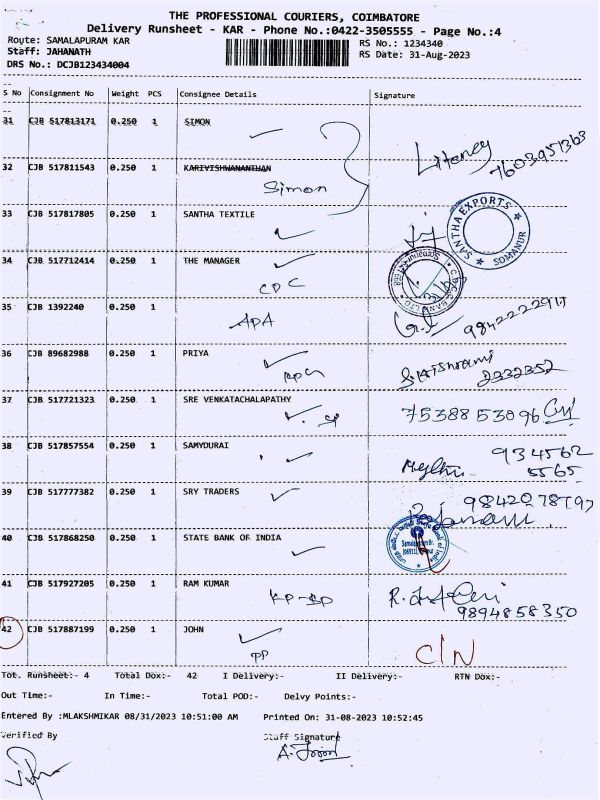 THE PROFESSIONAL COURIERS, COIMBATORE
Delivery Runsheet - KAR - Phone No.:0422-3505555 - Page No.:4
Route: SAMALAPURAM KAR
RS No.: 1234340
Staff: JAHANATH
RS Date: 31-Aug-2023
DRS No.: DCJB123434004
S No Consignment No Weight PCS Consignee Details Signature
31 CJB 517813171 0.250 1 SIMON
32 CJB 517811543 0.250 1 KARIVISHWANANTHAN
Simon
7603951363
33 CJB 517817805 0.250 1 SANTHA TEXTILE
SANTHA EXPORTS
SOMANUR
34 CJB 517712414 0.250 1 THE MANAGER
CDC
35 CJB 1392240 0.250 1
APA
36 CJB 89682988 0.250 1 PRIYA
2332352
37 CJB 517721323 0.250 1 SRE VENKATACHALAPATHY
7538853096
38 CJB 517857554 0.250 1 SAMYDURAI
934562
5565
39 CJB 517777382 0.250 1 SRY TRADERS
40 CJB 517868250 0.250 1 STATE BANK OF INDIA
41 CJB 517927205 0.250 1 RAM KUMAR
9894858350
42 CJB 517887199 0.250 1 JOHN
PP
C/N
Tot. Runsheet:- 4 Total Dox:- 42 I Delivery:- II Delivery:- RTN Dox:-
Out Time:- In Time:- Total POD:- Delvy Points:-
Entered By :MLAKSHMIKAR 08/31/2023 10:51:00 AM Printed On: 31-08-2023 10:52:45
Verified By Staff Signature